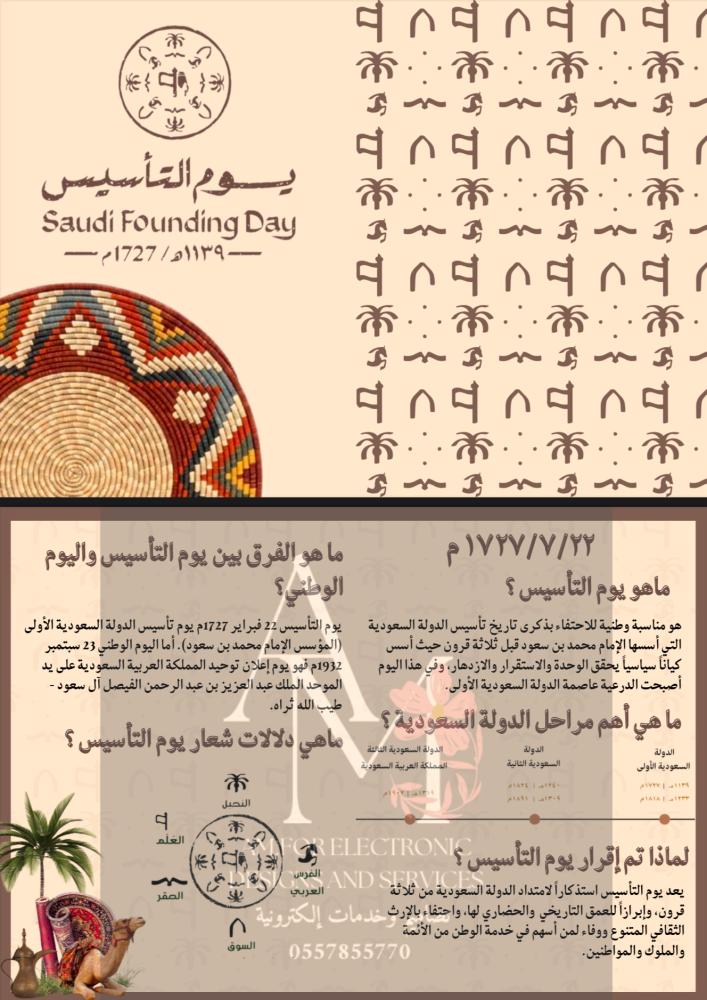 يوم التأسيس
Saudi Founding Day
١١٣٩هـ / 1727م
١٧٢٧/٧/٢٢ م
ماهو يوم التأسيس ؟
هو مناسبة وطنية للاحتفاء بذكرى تاريخ تأسيس الدولة السعودية
التي أسسها الإمام محمد بن سعود قبل ثلاثة قرون حيث أسس
كياناً سياسياً يحقق الوحدة والاستقرار والازدهار، وفي هذا اليوم
أصبحت الدرعية عاصمة الدولة السعودية الأولى.
ما هي أهم مراحل الدولة السعودية ؟
الدولة
السعودية الأولى
١١٣٩هـ | ١٧٢٧م
١٢٣٣هـ | ١٨١٨م
الدولة
السعودية الثانية
١٢٤٠هـ | ١٨٢٤م
١٣٠٩هـ | ١٨٩١م
الدولة السعودية الثالثة
المملكة العربية السعودية
١٣١٩هـ | ١٩٠٢م
لماذا تم إقرار يوم التأسيس ؟
يعد يوم التأسيس استذكاراً لامتداد الدولة السعودية من ثلاثة
قرون، وإبرازاً للعمق التاريخي والحضاري لها، واحتفاء بالإرث
الثقافي المتنوع ووفاء لمن أسهم في خدمة الوطن من الأئمة
والملوك والمواطنين.
ما هو الفرق بين يوم التأسيس واليوم
الوطني؟
يوم التأسيس 22 فبراير 1727م يوم تأسيس الدولة السعودية الأولى
(المؤسس الإمام محمد بن سعود). أما اليوم الوطني 23 سبتمبر
1932م فهو يوم إعلان توحيد المملكة العربية السعودية على يد
الموحد الملك عبد العزيز بن عبد الرحمن الفيصل آل سعود -
طيب الله ثراه.
ماهي دلالات شعار يوم التأسيس ؟
النخيل
العلم
الفرس
العربي
الصقر
السوق
AM
AM FOR ELECTRONIC
DESIGNS AND SERVICES
تصاميم وخدمات إلكترونية
0557855770